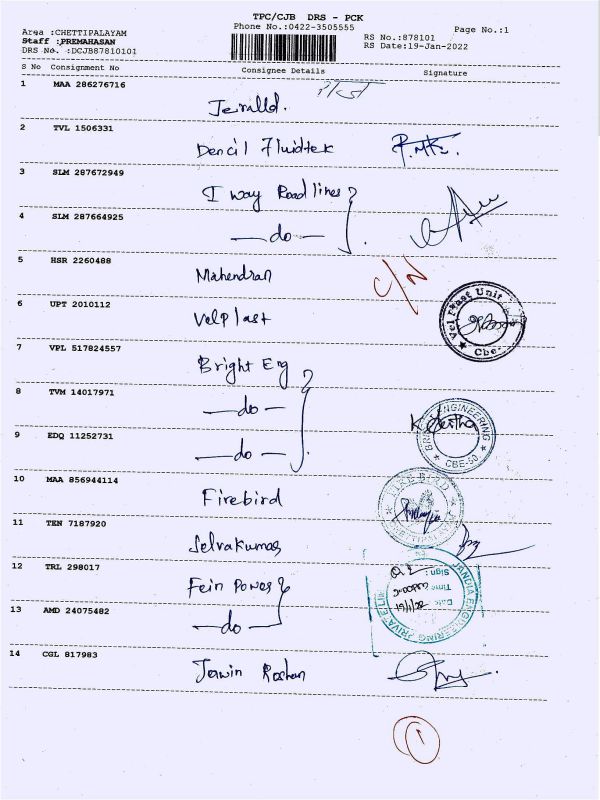 TPC/CJB DRS - PCK
Phone No.:0422-3505555
Page No.:1
Area :CHETTIPALAYAM
Staff :PREMAHASAN
DRS No. :DCJB87810101
RS No.:878101
RS Date:19-Jan-2022
S No Consignment No Consignee Details Signature
1 MAA 286276716 Jeralld.
2 TVL 1506331 Dencil Fluidtek
3 SLM 287672949 I way Roadlines
4 SLM 287664925 —do—
5 HSR 2260488 Mahendran C/N
6 UPT 2010112 Velplast
Vel Plast Unit
Cbe
7 VPL 517824557 Bright Eng
8 TVM 14017971 —do—
ENGINEERING
CBE-50
9 EDQ 11252731 —do—
10 MAA 856944114 Firebird
FIREBIRD
11 TEN 7187920 Selvakumar
12 TRL 298017 Fein Power
Sign :
Time
Date
ENGINEERING
13 AMD 24075482 —do—
14 CGL 817983 Jerwin Roshan
1